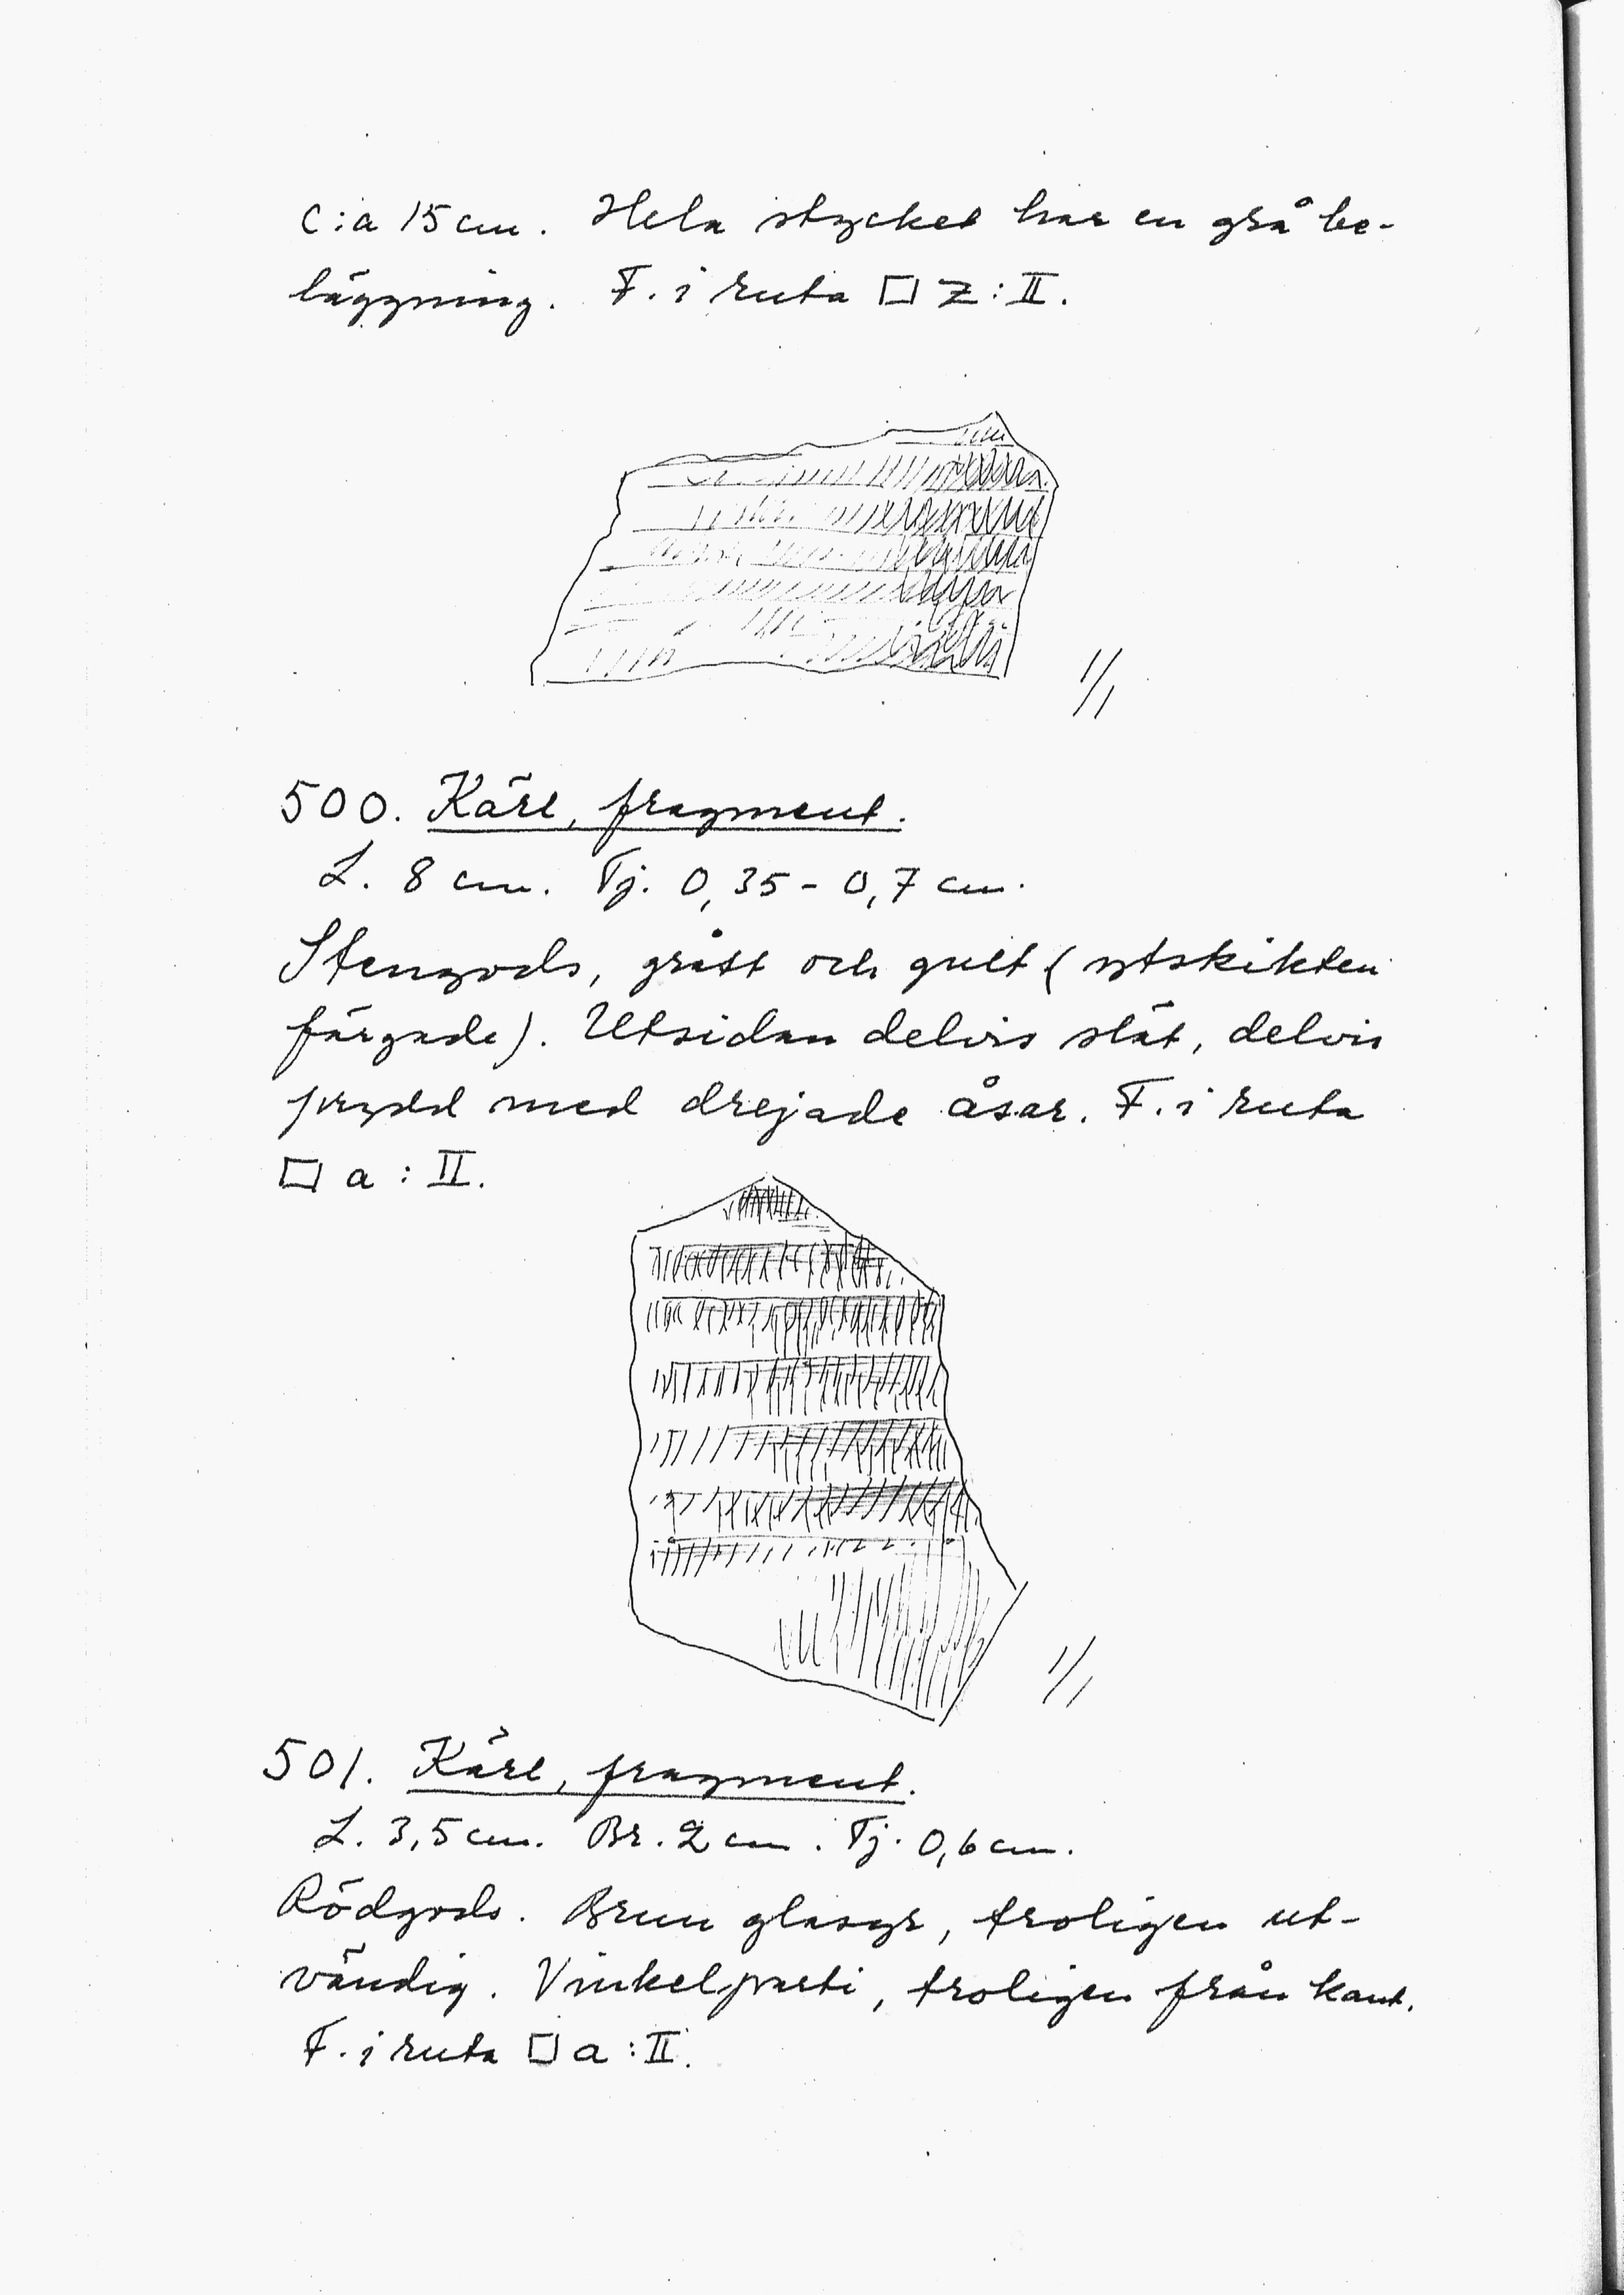 C:a 15 cm. Hela stycket har en grå be-
läggning. F. i ruta □ Z:II.
1/1
500. Kärl, fragment.
L. 8 cm. Tj. 0,35 - 0,7 cm.
Stengods, grått och gult (ytskikten
färgade). Utsidan delvis slät, delvis
prydd med drejade åsar. F. i ruta
□ a : II.
1/1
501. Kärl, fragment.
L. 3,5 cm. Br. 2 cm. Tj. 0,6 cm.
Rödgods. Brun glasyr, troligen ut-
vändig. Vinkelparti, troligen från kant.
F. i ruta □ a : II.